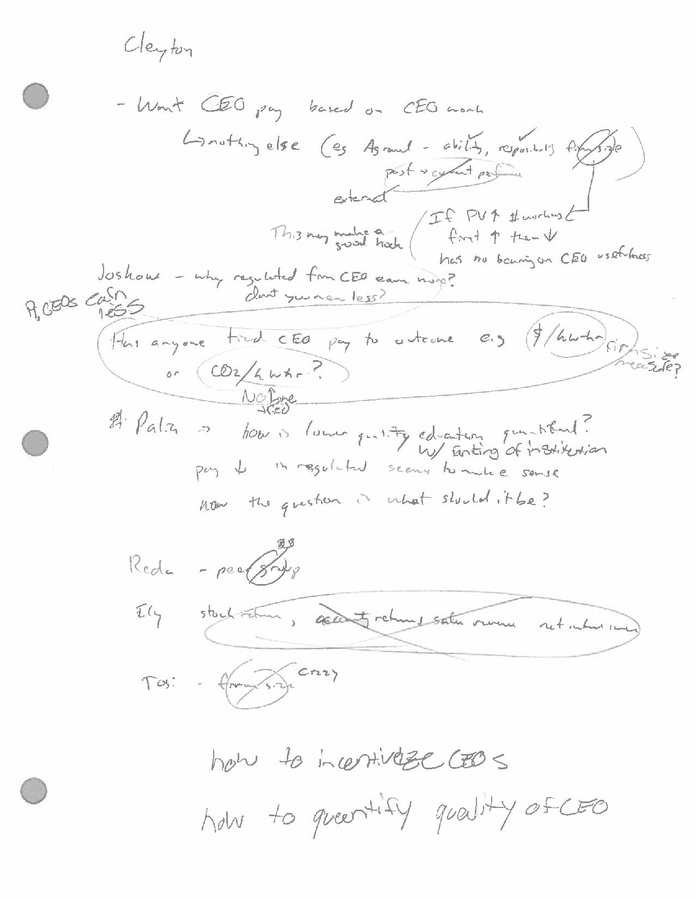 Cleyton
- Want CEO pay based on CEO work
↳ nothing else (eg Agrawal - ability, responsibility firm size)
past → current performance
external
This may make a good hook
If PV ↑ # workers
first ↑ then ↓
has no bearing on CEO usefulness
Joskow - why regulated firm CEO earn more?
don't you mean less?
A, CEOs earn less
Has anyone tied CEO pay to outcome e.g $/kwhr
firm size measure?
or CO2/kwhr?
No one tied
Palia → how is lower quality education quantified?
w/ ranking of institution
pay ↓ in regulated seems to make sense
now the question is what should it be?
Reda - peer group
Ely stock return, returns sales revenue net interest income
Tosi - firm size crazy
how to incentivize CEOs
how to quantify quality of CEO